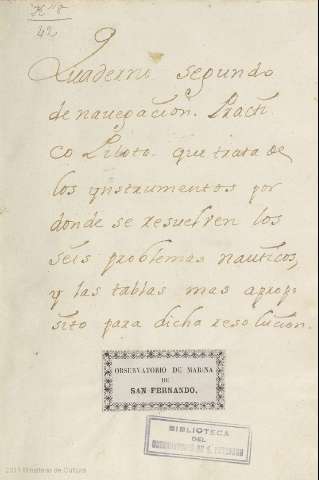 42
Quaderno segundo
de navegacion. Practi
co Piloto. que trata de
los ynstrumentos por
donde se resuelven los
seis problemas nauticos,
y las tablas mas apropo
sito para dicha resolucion.
OBSERVATORIO DE MARINA
DE
SAN FERNANDO.
BIBLIOTECA
DEL
OBSERVATORIO DE S. FERNANDO
2011 Ministerio de Cultura